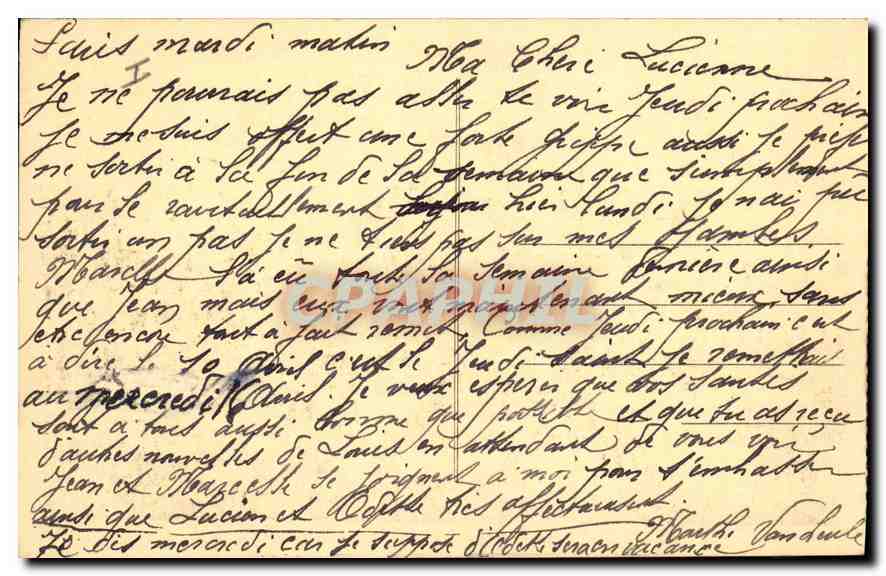 Paris mardi matin
Ma Chere Lucienne
Je ne pourrais pas aller te voir Jeudi prochain
Je me suis offert une forte grippe aussi je
ne sortir à la fin de la semaine que simplement
pour le ravitaillement hier lundi je nai pu
sortir un pas je ne tiens pas sur mes Jambes
Marcelle l'a eu toute la semaine dernière ainsi
que Jean mais eux vont maintenant mieux sans
etre encore tout a fait remit Comme Jeudi prochain c'est
à dire le 10 Avril c'est le Jeudi saint Je remettrais
au mercredi 16 Avril. Je veux esperer que vos santes
sont à tous aussi bonne que possible et que tu as reçu
d'autres nouvelles de Louis en attendant de vous voir
Jean et Marcelle se joignent a moi pour t'embrasser
ainsi que Lucien et Odette tres affectueusement.
Marthe
Je dis mercredi car je suppose qu'Odette sera en vacance
CPAPHIL